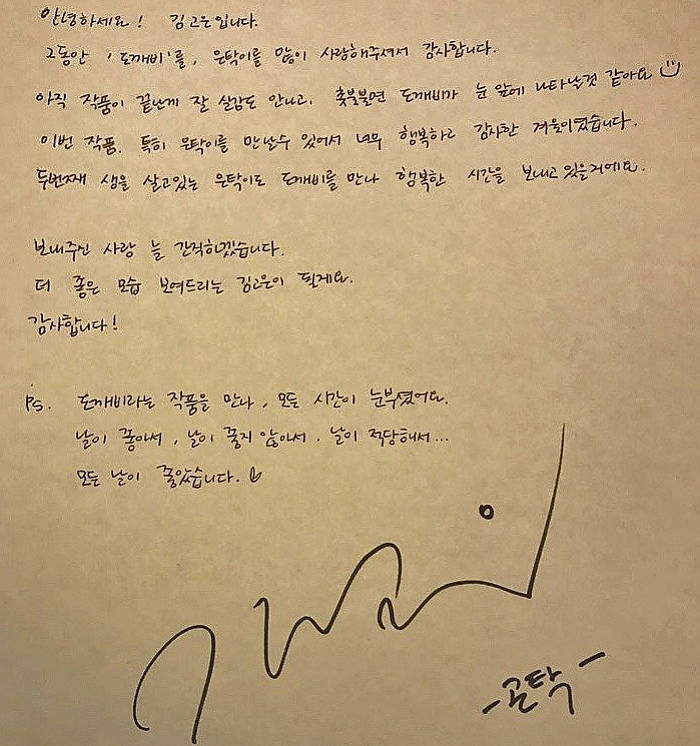 안녕하세요! 김고은입니다.
그동안 '도깨비'를, 은탁이를 많이 사랑해주셔서 감사합니다.
아직 작품이 끝난게 잘 실감도 안나고, 촛불불면 도깨비가 눈 앞에 나타날것 같아요
이번 작품. 특히 은탁이를 만날수 있어서 너무 행복하고 감사한 겨울이였습니다.
두번째 생을 살고있는 은탁이도 도깨비를 만나 행복한 시간을 보내고 있을거에요.
보내주신 사랑 늘 간직하겠습니다.
더 좋은 모습 보여드리는 김고은이 될게요.
감사합니다!
Ps. 도깨비라는 작품을 만나, 모든 시간이 눈부셨어요.
날이 좋아서, 날이 좋지 않아서. 날이 적당해서...
모든 날이 좋았습니다.